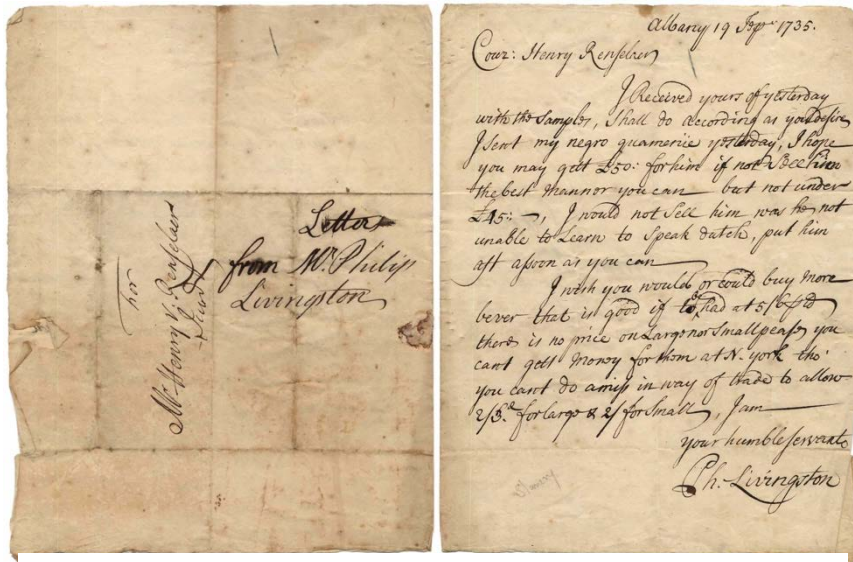 Letter
from Mr. Philip
Livingston
For
Mr. Henry V. Renselaer
Junr
Albany 19 Sepr 1735.
Couz: Henry Renselaer
I Received yours of yesterday
with the Samples, I shall do according as you desire
I sent my negro quamerie yesterday, I hope
you may gett £50: for him if not Sell him
the best Mannor you can but not under
£45:-, I would not Sell him was he not
unable to Learn to Speak dutch, put him
off assoon as you can
I wish you would or could buy More
bever that is good if to be had at 5/6 pd
there is no price on Large nor Small pease you
cant gett Money for them at N. york tho'
you cant do amiss in way of trade to allow
2/3d for large & 2/ for Small, I am
your humble servant
Ph. Livingston